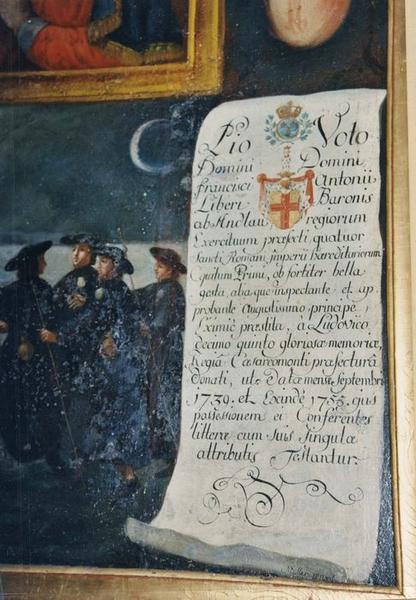 Pio Voto
Domini Domini
francisci Antonii
Liberi Baronis
ab Andlau regiorum
Exercituum præfecti quatuor
Sancti Romani imperii hæreditariorum
Equitum Primi, ob fortiter bella
gesta, aliaque inspectante et ap
probante Augustissimo principe
Eximiè præstita, a Ludovico
Decimo quinto gloriosæ memoriæ,
Regiâ Cæsaremonti præfecturâ
Donati, utì Datæ mense Septembri
1739. et Exindè 1755. ejus
possessionem ei Conferentes
litteræ cum suis Singulæ
attributis Testantur.